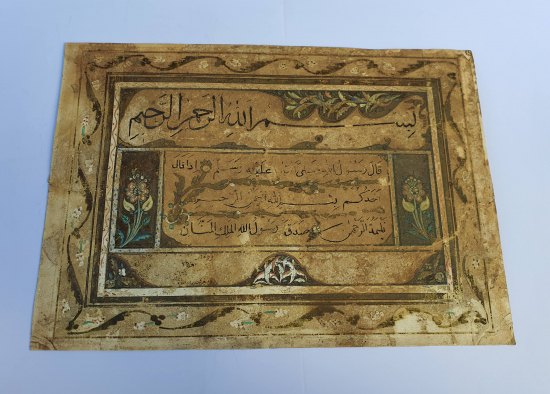 بسم الله الرحمن الرحيم
قال رسول الله صلى الله عليه وسلم اذا قال
احدكم بسم الله الرحمن الرحيم
صدق رسول الله الملك المنان